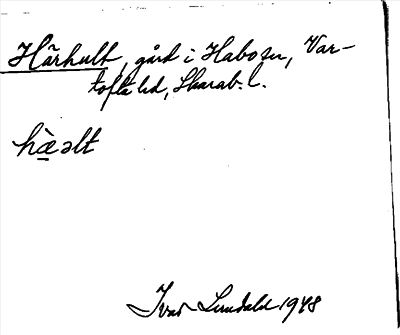 Hårhult, gård i Habo sn, Var-
tofta hd, Skarab. l.
hæ̀əlt
Ivar Lundahl 1948